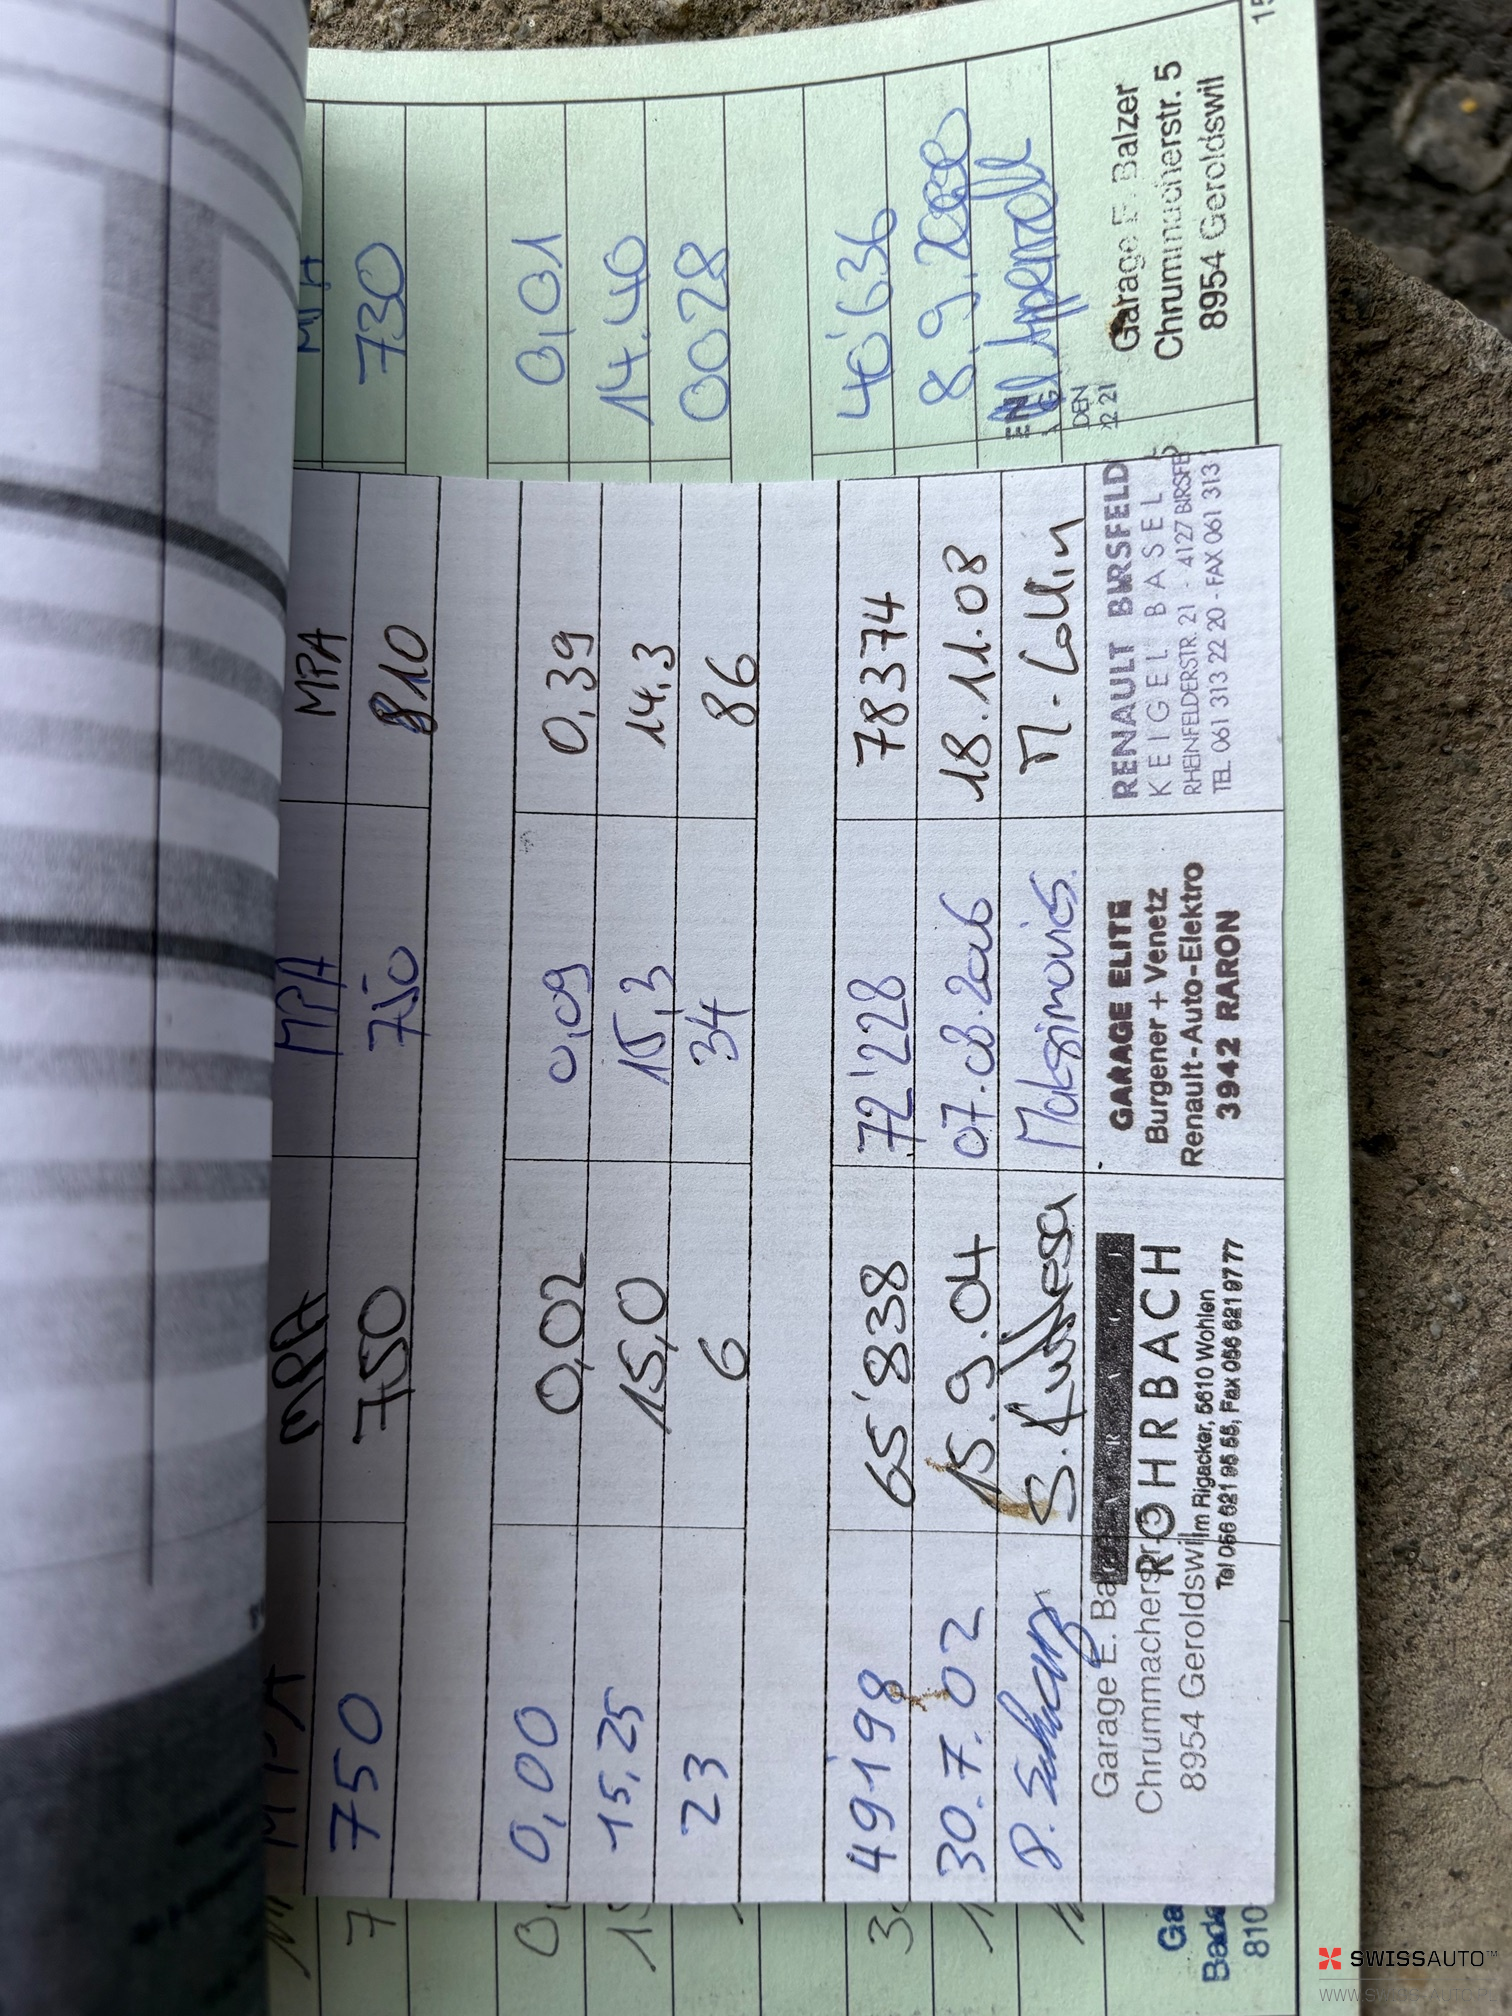 MPA
750
0,00
15,25
23
49198
30.7.02
Garage E. Ba
Chrummacherstr
8954 Geroldswil
MPA
750
0,02
15,0
6
65'838
15.9.04
ROHRBACH
Im Rigacker, 5610 Wohlen
Tel 056 621 95 55, Fax 056 621 97 77
MPA
750
0,09
15,3
34
72'228
07.08.2006
Maksimovics.
GARAGE ELITE
Burgener + Venetz
Renault-Auto-Elektro
3942 RARON
MPA
810
0,39
14.3
86
78374
18.11.08
M. Collin
RENAULT BIRSFELD
KEIGEL BASEL
RHEINFELDERSTR. 21 - 4127 BIRSFE
TEL. 061 313 22 20 - FAX 061 313
EN
DEN
22 21
MPA
730
0,01
14.40
0028
40'636
8.9.2000
Garage E. Balzer
Chrummacherstr. 5
8954 Geroldswil
15
7
0,
3
1
Ga
Bade
810
SWISSAUTO™
www.swissauto